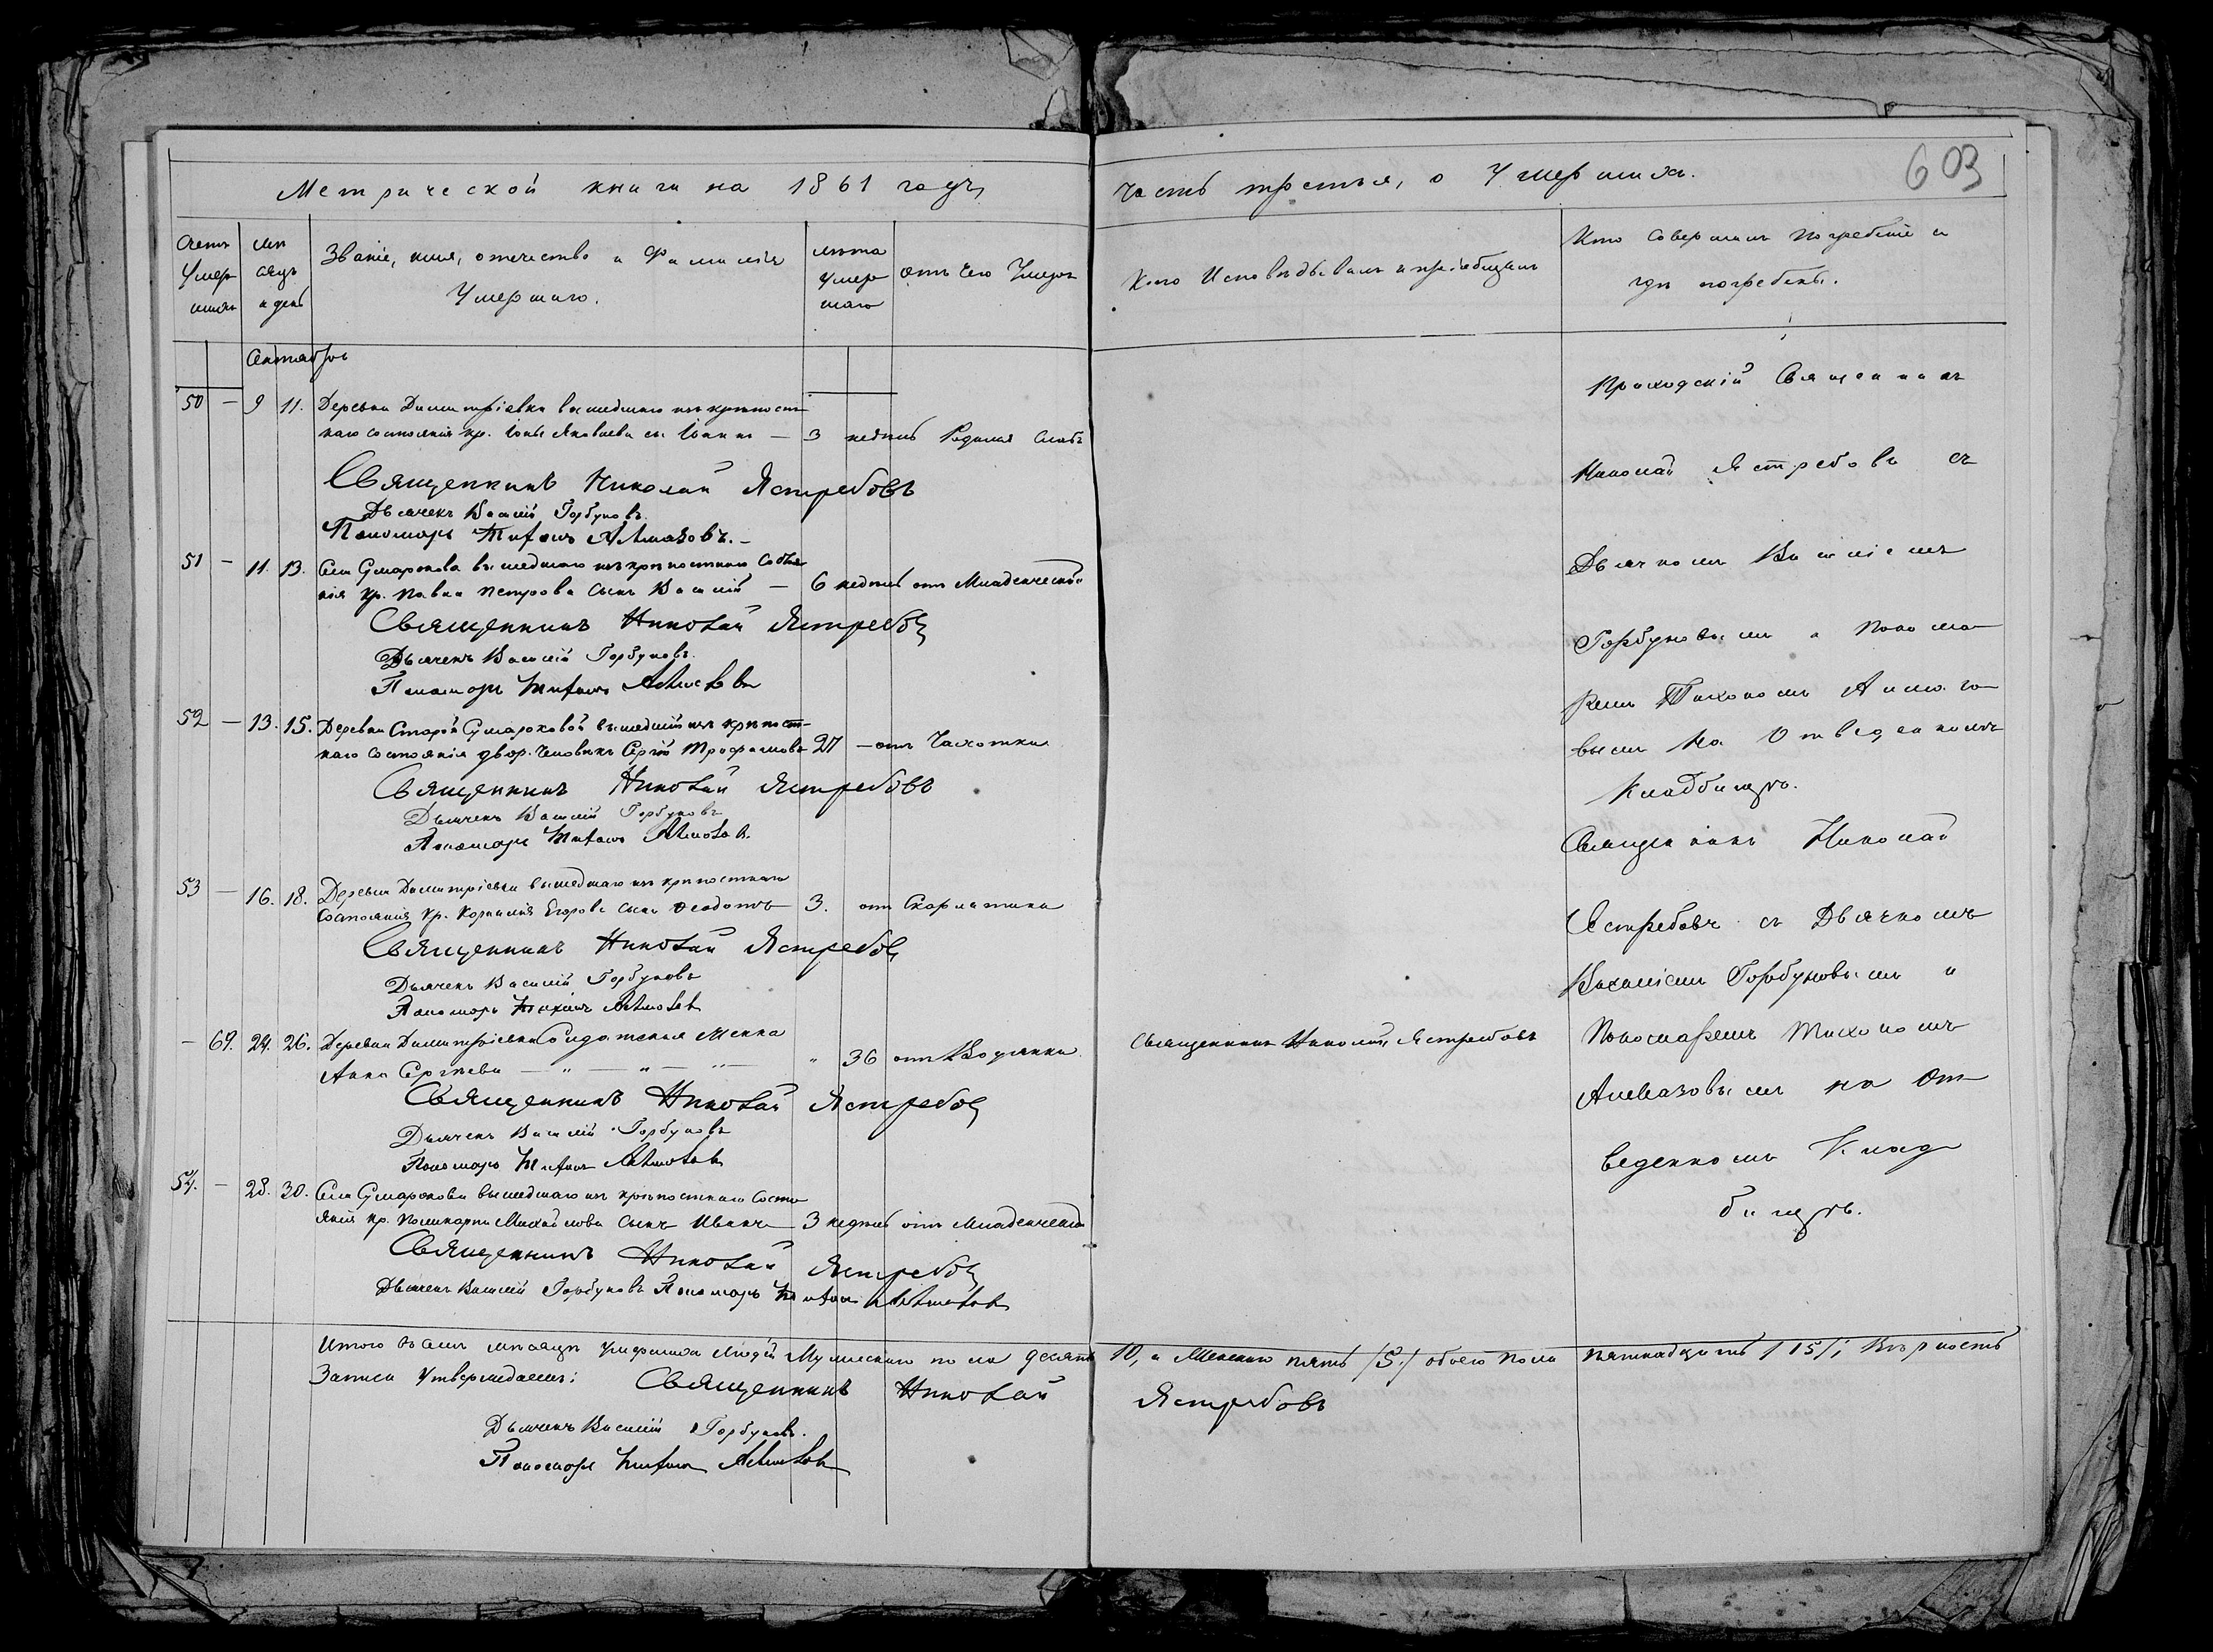 Метрической книги на 1861 годъ,
часть третья, о Умершихъ.
603
Счетъ Умершихъ
Мѣсяцъ и день
Званіе, имя, отечество и Фамилія Умершаго.
лѣта Умершаго
отъ чего Умеръ
Кто Исповѣдывалъ и пріобщалъ
Кто совершалъ погребеніе и гдѣ погребены.
Октябрь
50 – 9 11. Деревни Димитріевки вышедшаго изъ крѣпост-
наго состоянія кр. Іоны Яковлева сы. Іоаннъ — 3 недѣль Родимая Слаб.
Священникъ Николай Ястребовъ
Дьячекъ Василій Горбуновъ
Пономарь Тихонъ Алмазовъ.–
51 – 11. 13. Села Сумарокова вышедшаго изъ крѣпостнаго Состоя-
нія кр. Павла Петрова сынъ Василій — 6 недѣль отъ Младенческой
Священникъ Николай Ястребовъ
Дьячекъ Василій Горбуновъ.
Пономарь Тихонъ Алмазовъ
52 – 13. 15. Деревни Старой Сумароковой вышедшій изъ крѣпост-
наго состоянія двор. человѣкъ Сергій Трофимовъ 27 – отъ Чахотки
Священникъ Николай Ястребовъ
Дьячекъ Василій Горбуновъ
Пономарь Тихонъ Алмазовъ.
53 – 16. 18. Деревни Димитріевки вышедшаго изъ крѣпостнаго
состоянія кр. Корнилія Егорова сынъ Ѳеодотъ 3. отъ Скарлатины
Священникъ Николай Ястребовъ
Дьячекъ Василій Горбуновъ
Пономарь Тихонъ Алмазовъ
– 69. 24. 26. Деревни Димитріевки Солдатская Женка
Анна Сергѣева — " — " — " — " 36 отъ Водянки.
Священникъ Николай Ястребовъ
Дьячекъ Василій Горбуновъ
Пономарь Тихонъ Алмазовъ
54. – 28. 30. Села Сумарокова вышедшаго изъ крѣпостнаго Состо-
янія кр. Поликарпа Михайлова сынъ Иванъ 3 недѣль отъ Младенческой
Священникъ Николай Ястребовъ
Дьячекъ Василій Горбуновъ Пономарь Тихонъ Алмазовъ
Священникъ Николай Ястребовъ
Приходскій Священникъ
Николай Ястребовъ съ
Дьячкомъ Василіемъ
Горбуновымъ и Понома-
ремъ Тихономъ Алмазо-
вымъ на Отведенномъ
Кладбищѣ.
Священникъ Николай
Ястребовъ съ Дьячкомъ
Василіемъ Горбуновымъ и
Пономаремъ Тихономъ
Алмазовымъ на От-
веденномъ Клад-
бищѣ.
Итого въ семъ мѣсяцѣ умершихъ людей Мужескаго пола десять 10, и Женскаго пять /5./ обоего пола пятнадцать /15/; Вѣрность
Записи Утверждаемъ: Священникъ Николай Ястребовъ
Дьячекъ Василій Горбуновъ.
Пономарь Тихонъ Алмазовъ